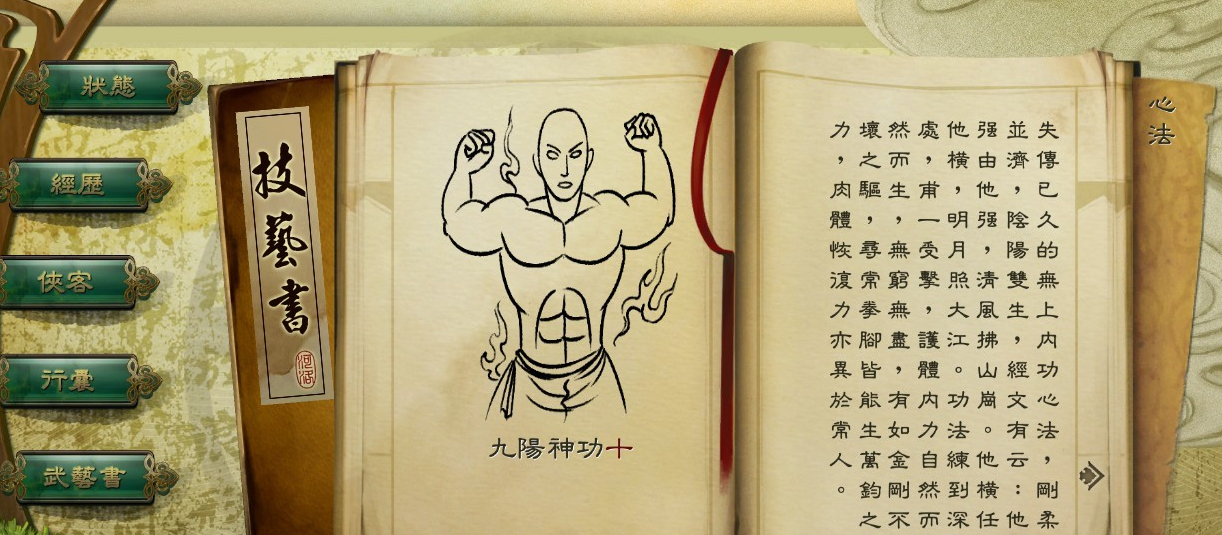 狀態
經歷
俠客
行囊
武藝書
技藝書
河洛
九陽神功十
心法
失傳已久的無上內功心法，剛柔
並濟，陰陽雙生，經文有云：他
强由他强，清風拂山崗。他橫任
他橫，明月照大江。功法練到深
處，甫一受擊，護體內力自然而
然而生，無窮無盡，有如金剛不
壞之驅，尋常拳腳皆能生萬鈞之
力，肉體恢復力亦異於常人。